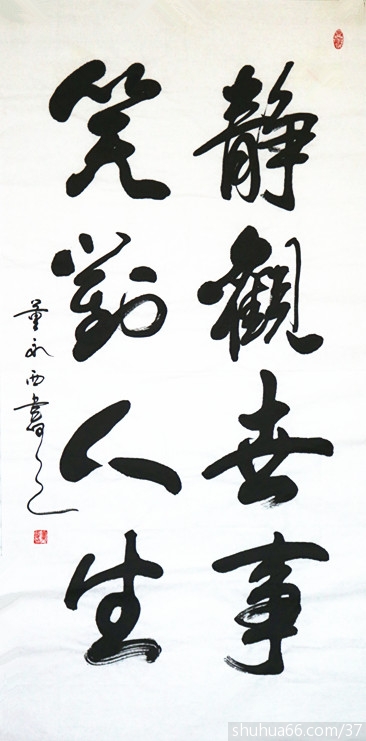 静觀世事
笑對人生
董永西書之
shuhua66.com/37